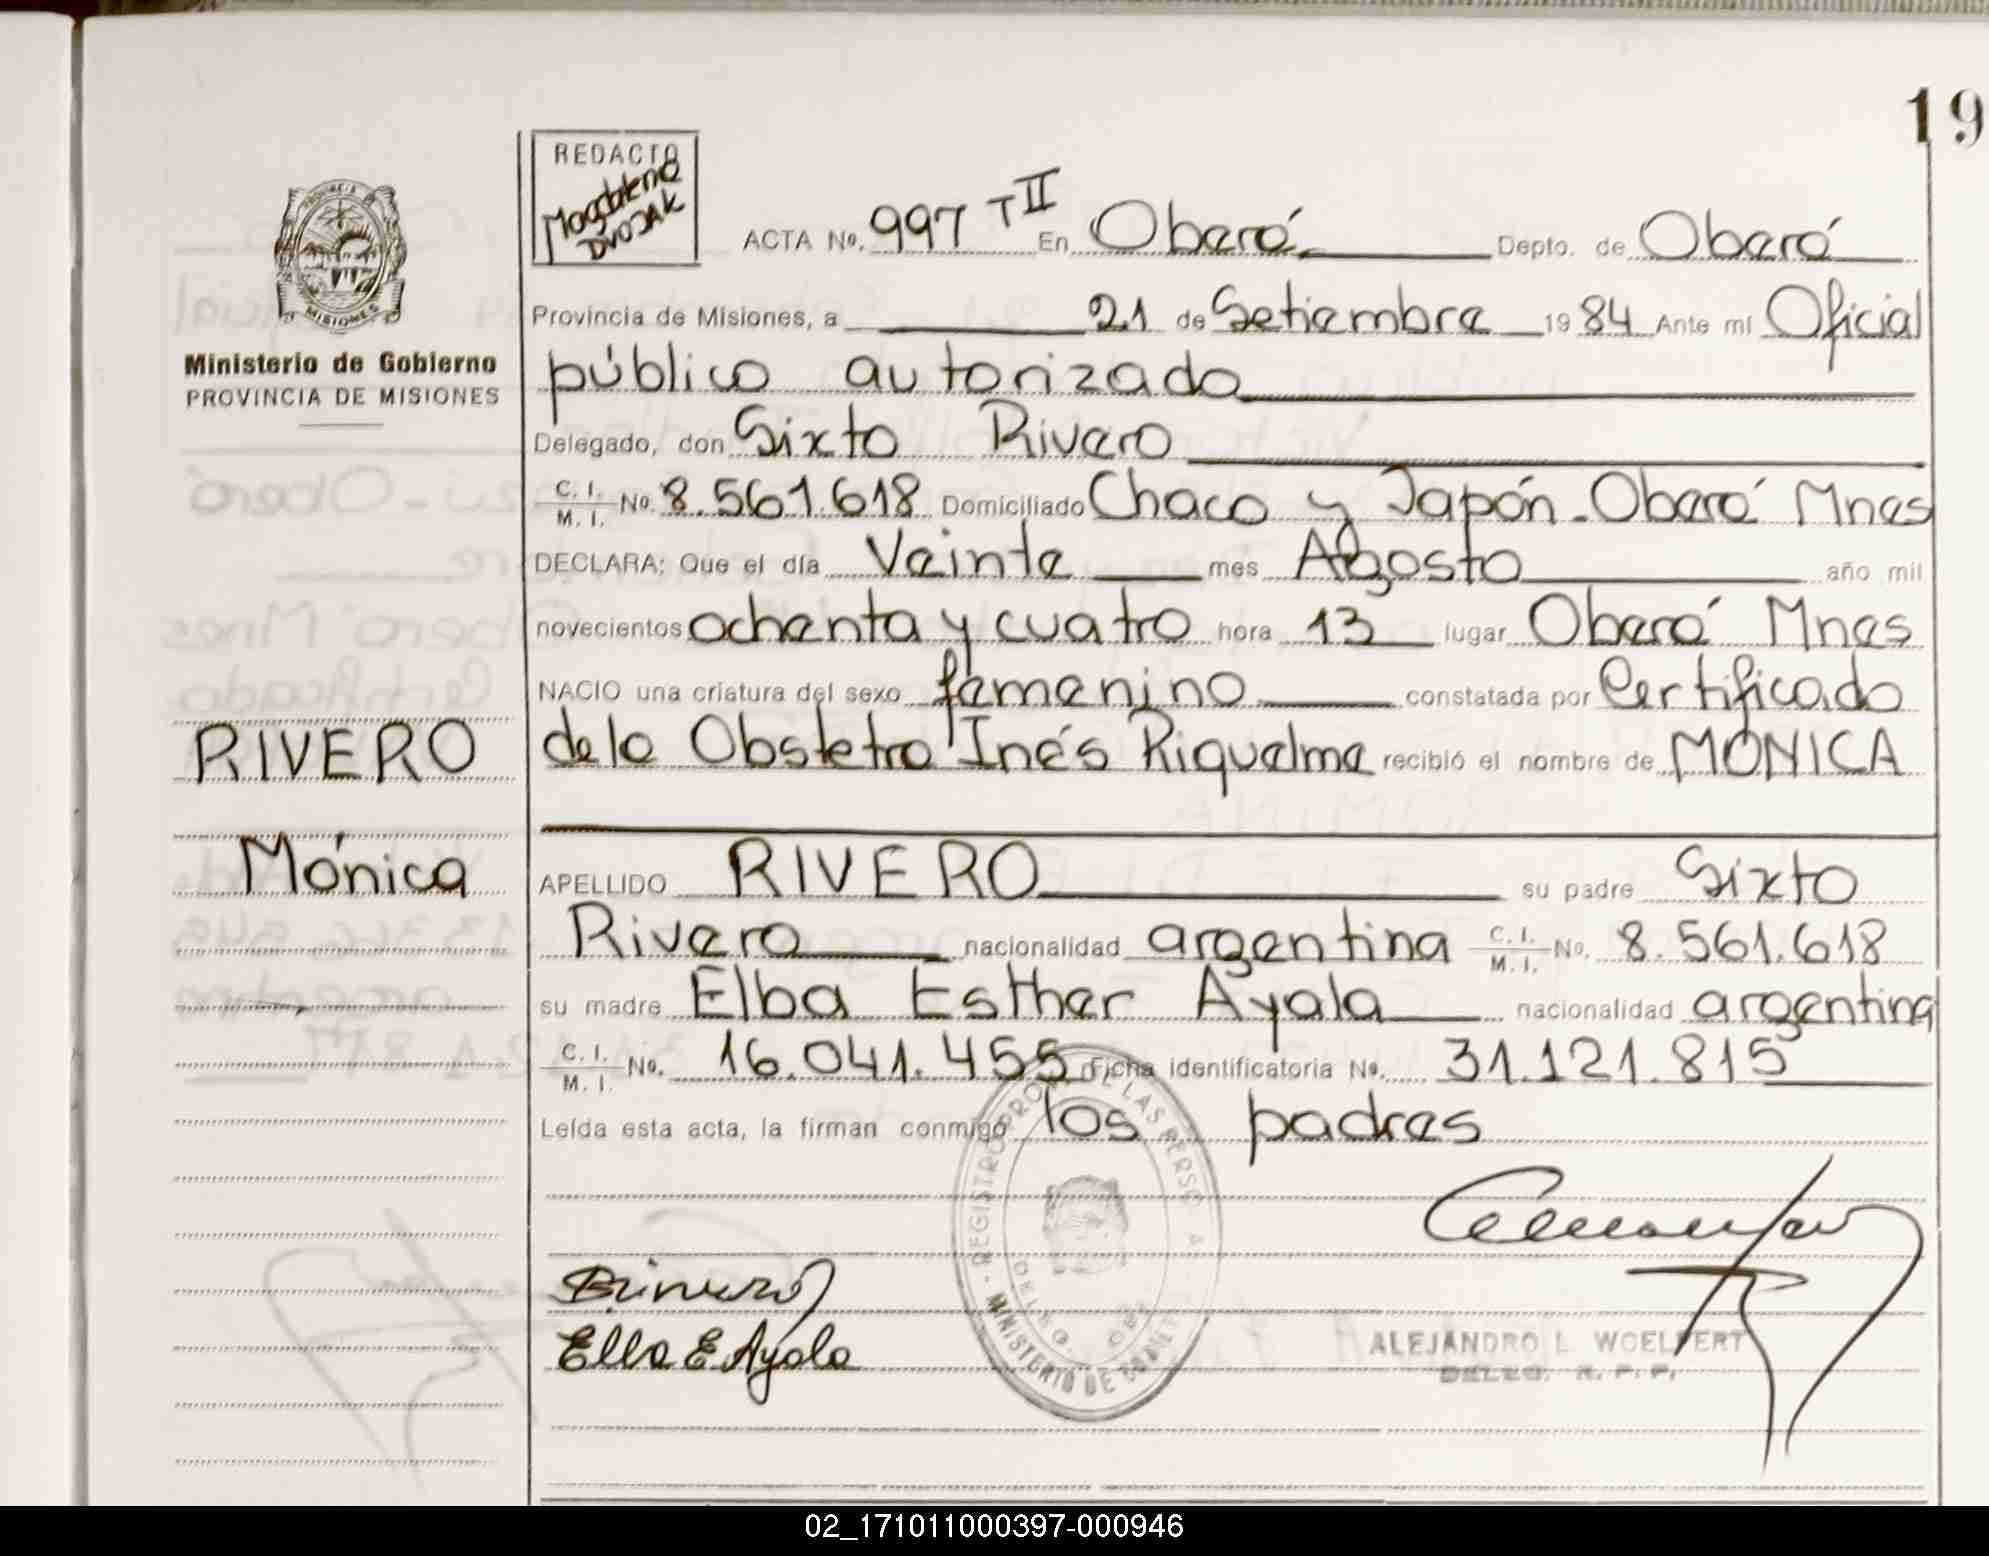 19
REDACTO
Magdalena
DVOJAK
ACTA No. 997 T II En Oberá Depto. de Oberá
Provincia de Misiones, a 21 de Setiembre 19 84 Ante mí Oficial
público autorizado
Delegado, don Sixto Rivero
C. I. M. I. No. 8.561.618 Domiciliado Chaco y Japón - Oberá Mnes
DECLARA: Que el día Veinte mes Agosto año mil
novecientos ochenta y cuatro hora 13 lugar Oberá Mnes
NACIO una criatura del sexo femenino constatada por Certificado
de la Obstetra Inés Riquelme recibió el nombre de MÓNICA
APELLIDO RIVERO su padre Sixto
Rivero nacionalidad argentina C. I. M. I. No. 8.561.618
su madre Elba Esther Ayala nacionalidad argentina
C. I. M. I. No. 16.041.455 Ficha identificatoria No. 31.121.815
Leída esta acta, la firman conmigo los padres
Elba E Ayala
ALEJANDRO L WOELFERT
DELEG. R. P. P.
MISIONES
Ministerio de Gobierno
PROVINCIA DE MISIONES
RIVERO
Mónica
02_171011000397-000946